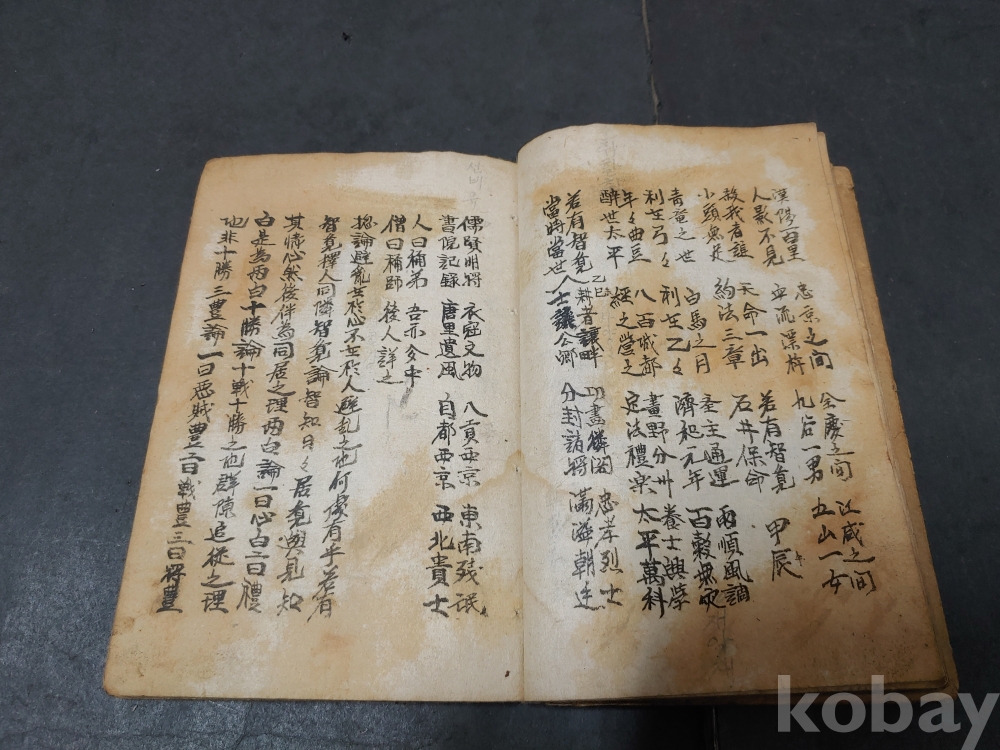 漢陽百里 忠京之間 全慶之間 江咸之間
人影不見 血流漂杵 九岩一男 五山一女
殺我者誰 天命一出 若有智覺
小頭無足 約法三章 石井保命 甲辰
青竜之世 白馬之月 圣主通運 雨順風調
利在弓々 利在乙々 濟和元年 百穀無灾
年々曲豆 八百城都 畫野分州 養士興學
醉世太平 經之營之 定法禮楽 太平萬科
乙巳
若有智覺 耕者讓畔 功畫麟閣 忠孝烈士
當時當世 人士 公卿 分封諸将 滿溢朝廷
儒賢明将 衣冠文物 八貢西京 東南残氓
書院記録 唐里遺風 自都西京 西北貴士
人曰補弟 吾亦
僧曰稱師 後人詳之
揔論避乱在於心不在於人避乱之地何處有乎若有
智覺擇人同隣智覺論智知日々居覺與見知
其情心然後伴為同居之理両白論一曰心白二曰禮
白是為両白十勝論十戦十勝之地群隊追従之理
地非十勝三豊論一曰惡賊豊二曰戦豊三曰将豊
kobay